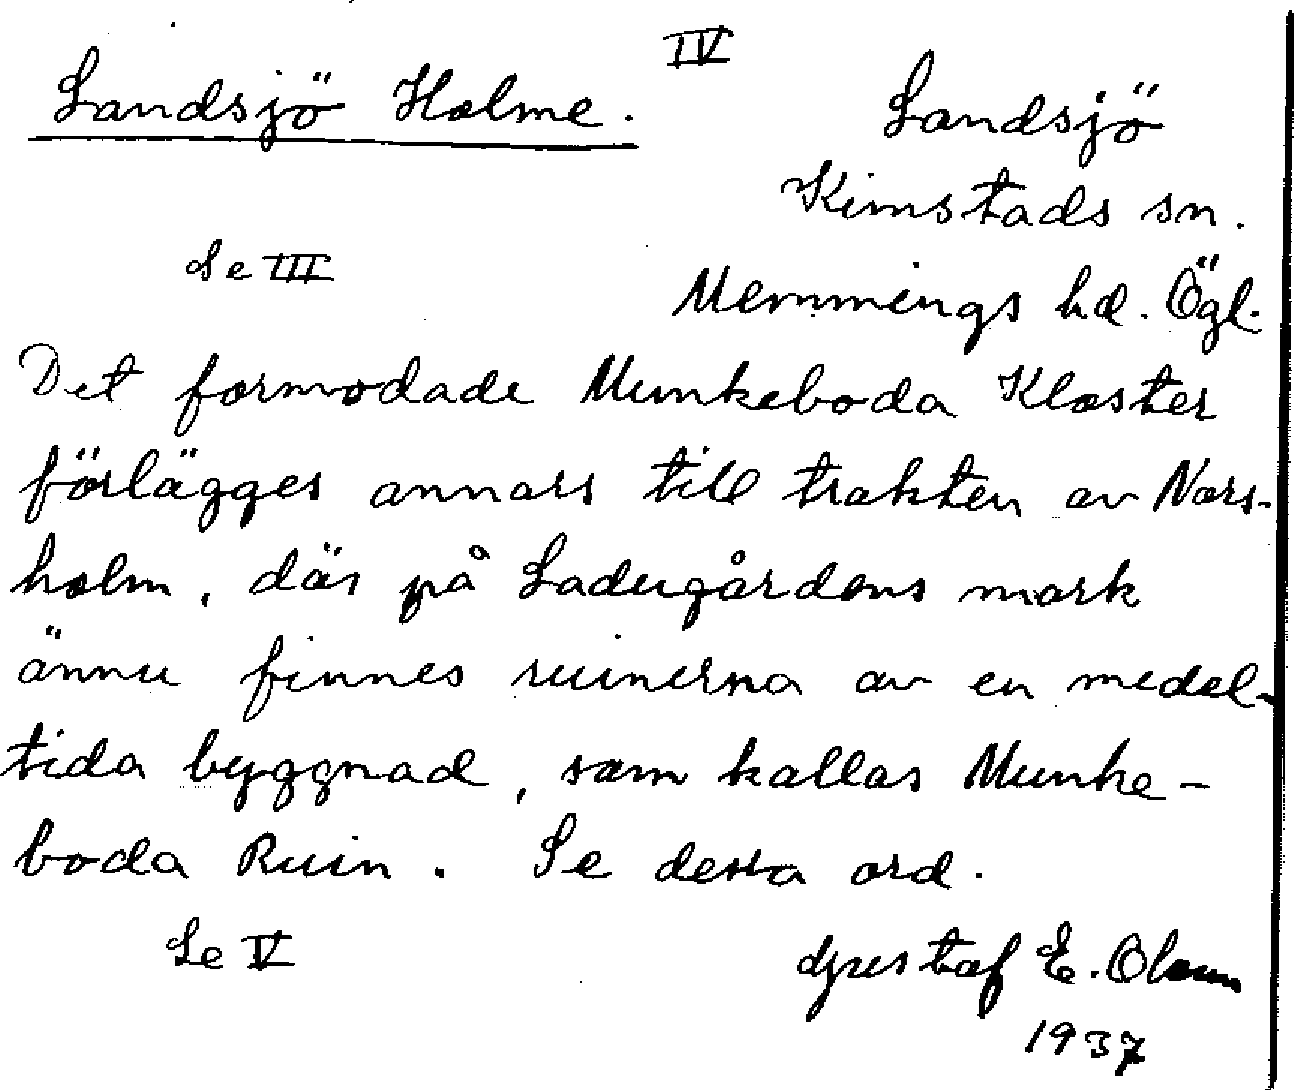 IV
Landsjö Holme.
Landsjö
Kimstads sn.
Se III
Memmings hd. Ögl.
Det formodade Munkeboda Kloster
förlägges annars till trakten av Nors-
holm, där på Ladugårdens mark
ännu finnes ruinerna av en medel-
tida byggnad, som kallas Munke-
boda Ruin. Se detta ord.
Se V
Gustaf E. Olsson
1937